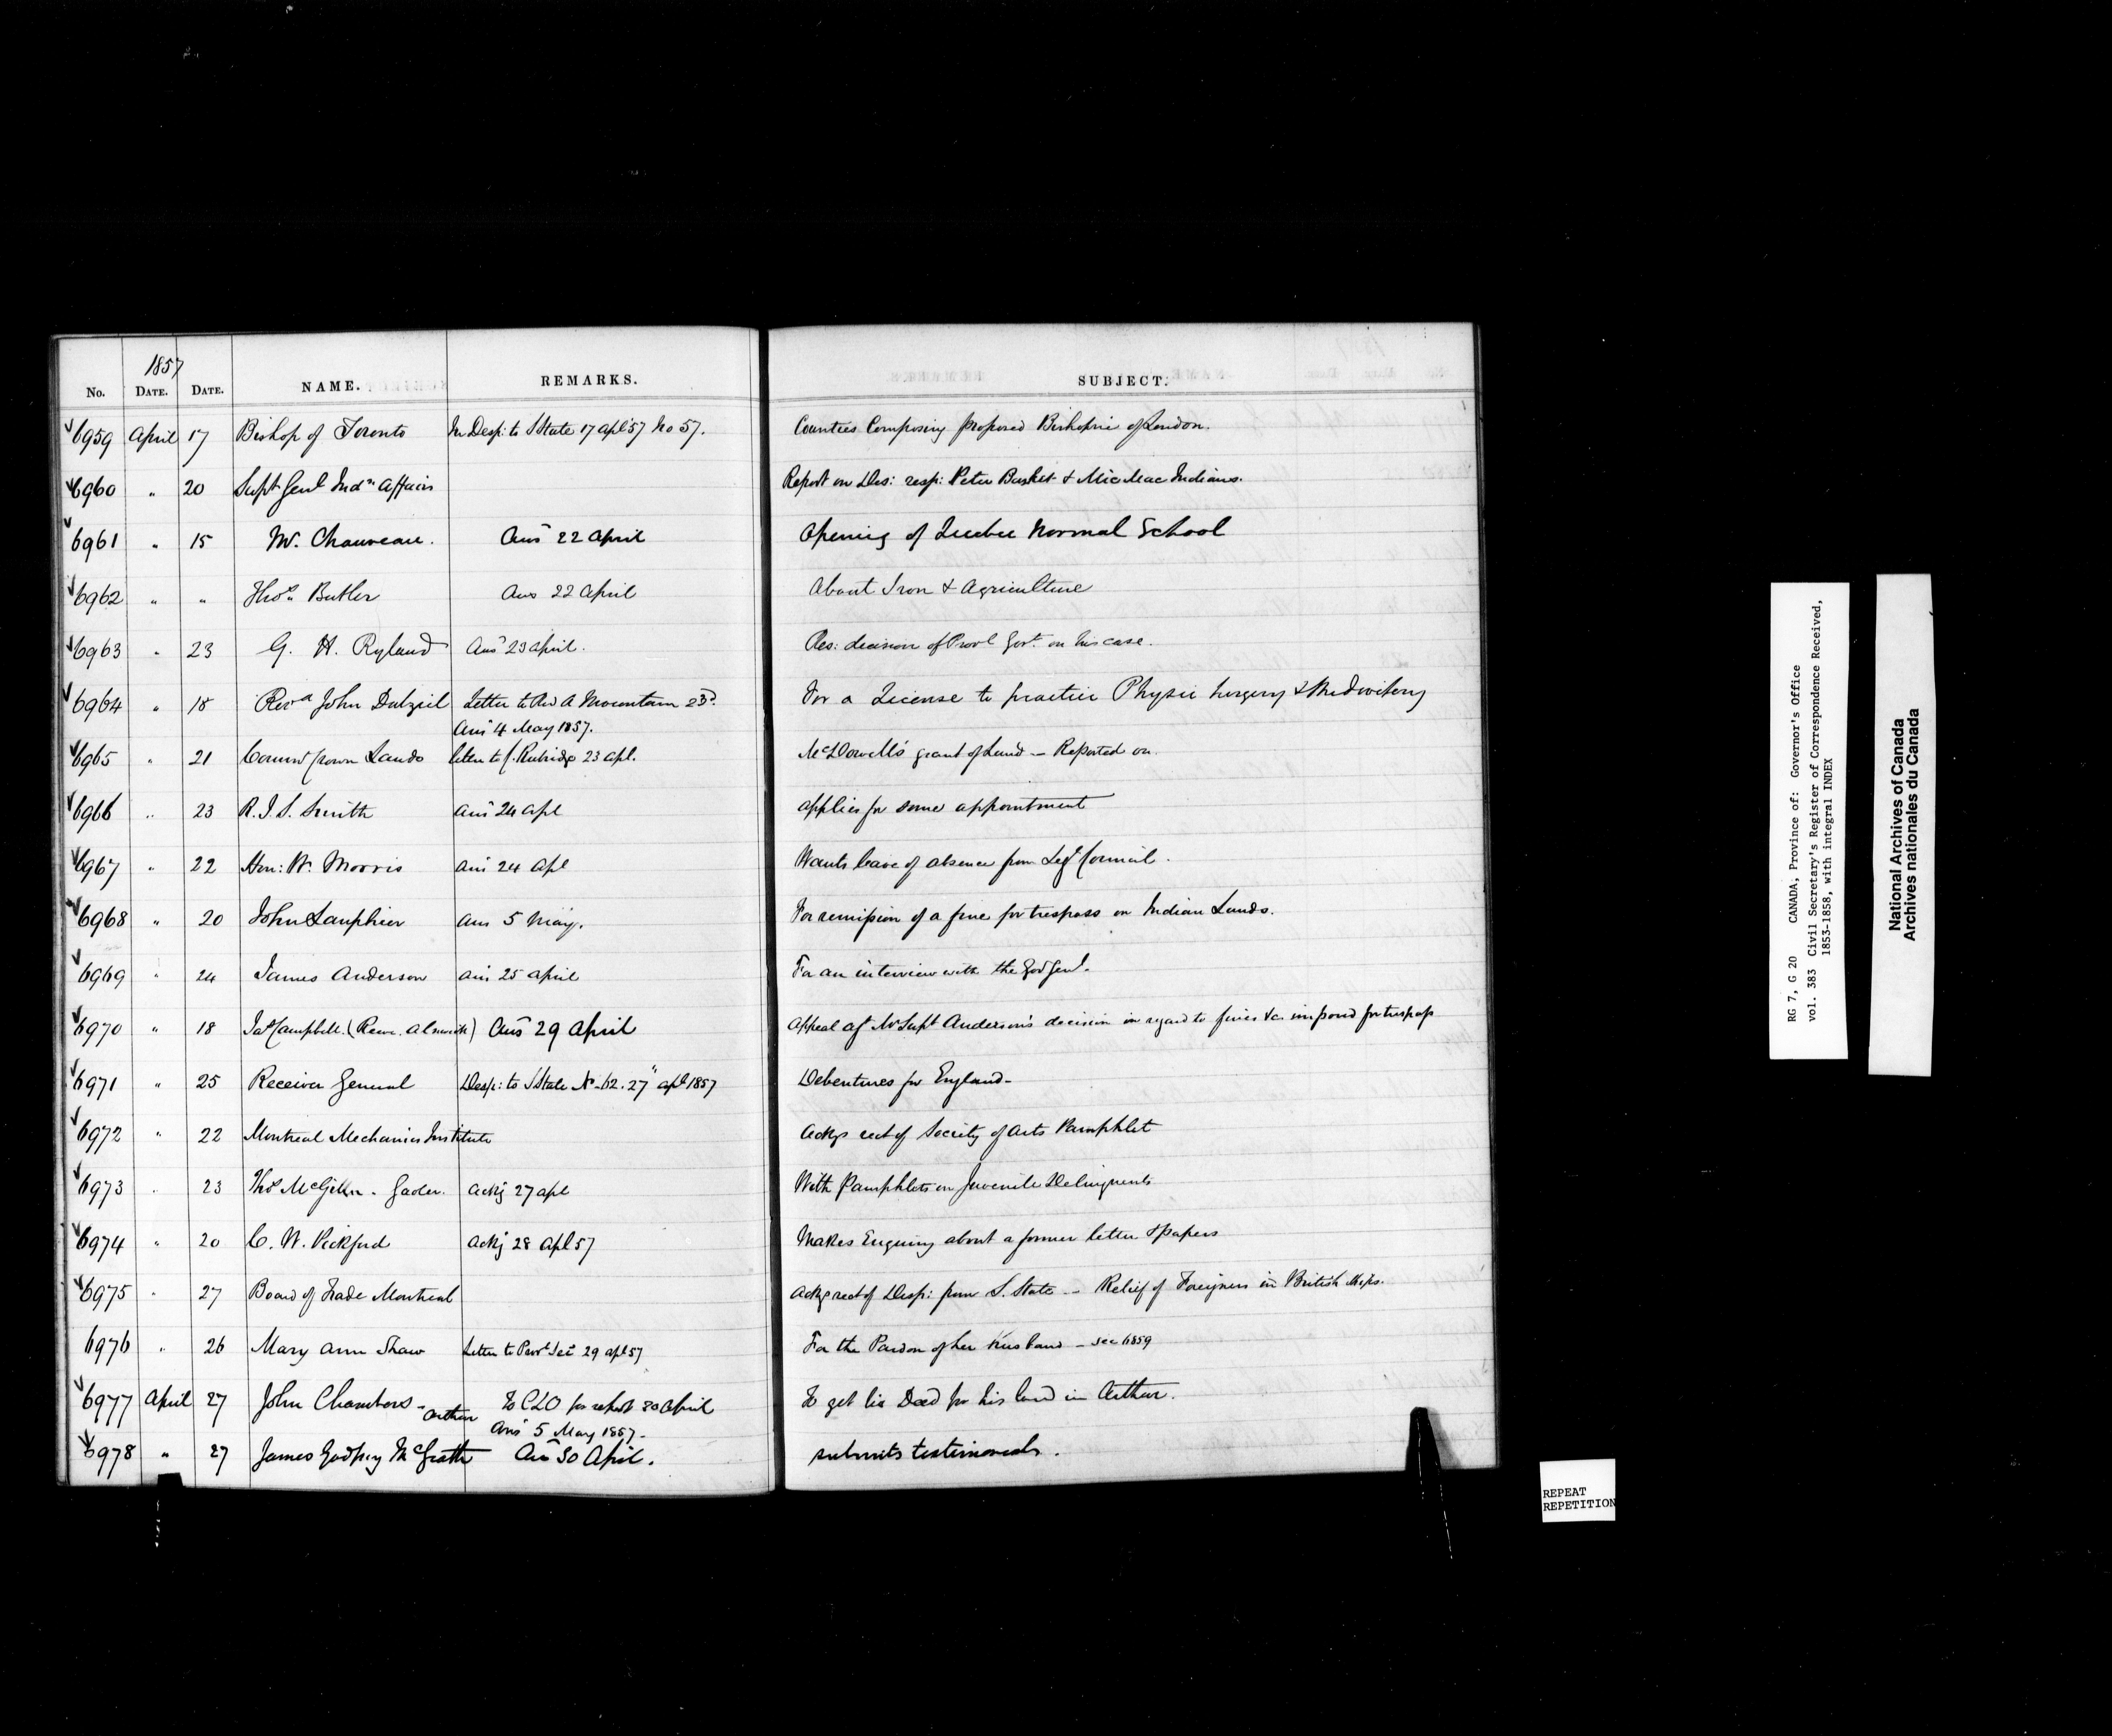 1857
No. DATE. DATE. NAME. REMARKS. SUBJECT.
6959 April 17 Bishop of Toronto In Desp: to S State 17 Apl 57 No 57. Counties Composing proposed Bishopric of London.
6960 " 20 Supt Genl Indn Affairs Report on Des: resp: Peter Basket & Mic Mac Indians.
6961 " 15 Mr. Chauveau. Ansd 22 April Opening of Quebec Normal School
6962 " " Thos. Butler Ans 22 April About Iron & Agriculture
6963 " 23 G. H. Ryland Ansd 23 April. Res: decision of Provl Govt. on his case.
6964 " 18 Revd John Dalziel Letter to Rev A Mountain 23d. For a License to practice Physic Surgery & Midwifery
Ansd 4 May 1857.
6965 " 21 Commr Crown Lands letter to C. Rubidge 23 Apl. McDowell's grant of Land – Reported on.
6966 " 23 R. J. S. Smith Ansd 24 Apl applies for some appointment
6967 " 22 Hon: W. Morris Ansd 24 Apl Wants leave of absence from Legt Council.
6968 " 20 John Lanphier Ans 5 May. For remission of a fine for trespass on Indian Lands.
6969 " 24 James Anderson Ansd 25 April For an interview with the Gov Genl.
6970 " 18 Jas Campbell. (Reeve. Alnwick) Ansd 29 April Appeal agt Mr Supt Anderson's decision in regard to fines &c imposed for trespass
6971 " 25 Receiver General Desp: to S State No 62. 27" Apl 1857 Debentures for England –
6972 " 22 Montreal Mechanics Institute Ackgs rect of Society of Arts Pamphlet
6973 " 23 Thos McGinn. Gaoler. Ackg 27 Apl With Pamphlets on Juvenile Delinquents
6974 " 20 C. W. Pickford Ackg 28 Apl 57 Makes Enquiry about a former letter & papers
6975 " 27 Board of Trade Montreal Ackg rect of Desp: from S. State – Relief of Foreigners in British Ships.
6976 " 26 Mary Ann Shaw Letter to Provl Sec 29 Apl 57 For the Pardon of her Husband – see 6859
6977 April 27 John Chambers – Arthur To CLO for report 30 April To get his Deed for his land in Arthur.
Ansd 5 May 1857 –
6978 " 27 James Godfrey McGrath Ans 30 April. submits testimonials.
RG 7, G 20 CANADA, Province of: Governor's Office
vol. 383 Civil Secretary's Register of Correspondence Received,
1853-1858, with integral INDEX
National Archives of Canada
Archives nationales du Canada
REPEAT
REPETITION